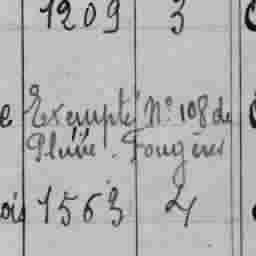 1209 3
e Exempté N° 108 de
Pluie. Fougères
ois 1563 4